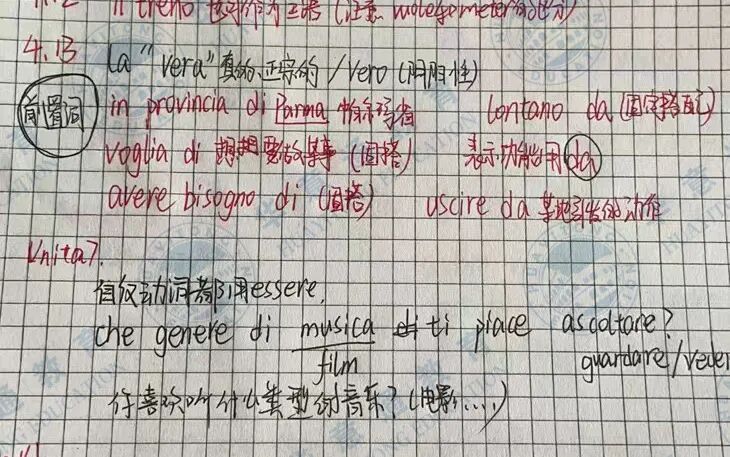 il treno 也可作为主语 (注意
4.13 la "vera" 真的、正宗的 / vero (阴阳性)
前置词 in provincia di Parma 帕尔玛省 lontano da (固定搭配)
voglia di 想要做某事 (固搭) 表示功能用 da
avere bisogno di (固搭) uscire da 某地引发的动作
Unità 7.
自反动词都用 essere,
che genere di musica ti piace ascoltare?
film guardare/veder
你喜欢听什么类型的音乐? (电影....)